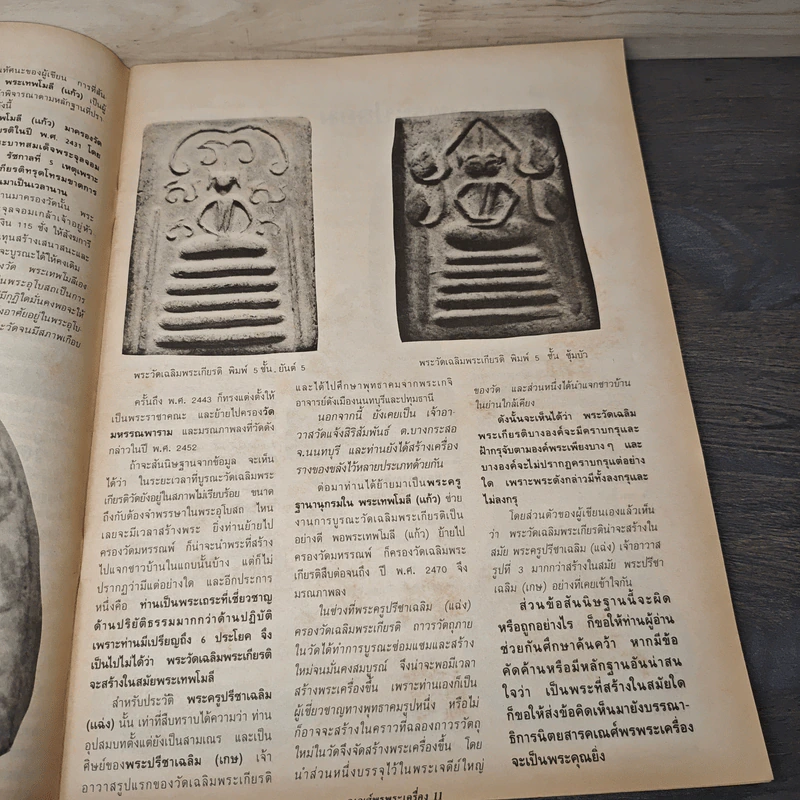 นทัศนะของผู้เขียน การที่สัน
พระเทพโมลี (แก้ว) เป็นผู้
พิจารณาตามหลักฐานที่ปรา
งนี้
พโมลี (แก้ว) มาครองวัด
ยรติในปี พ.ศ. 2431 โดย
ะบาทสมเด็จพระจุลจอม
รัชกาลที่ 5 เหตุเพราะ
กียรติทรุดโทรมขาดการ
มาเป็นเวลานาน
านมาครองวัดนั้น พระ
จุลจอมเกล้าเจ้าอยู่หัว
งิน 115 ชั่ง ให้สังฆการี
ทุนสร้างเสนาสนะและ
จะบูรณะได้ให้คงเดิม
งวัด พระเทพโมลีเอง
นพระอุโบสถเป็นการ
มีกุฏิใดมั่นคงพอจะให้
องอาศัยอยู่ในพระอุโบ
ะวัดจนมีสภาพเกือบ
พระวัดเฉลิมพระเกียรติ พิมพ์ 5 ชั้น ยันต์ 5
พระวัดเฉลิมพระเกียรติ พิมพ์ 5 ชั้น ซุ้มบัว
ครั้นถึง พ.ศ. 2443 ก็ทรงแต่งตั้งให้
เป็นพระราชาคณะ และย้ายไปครองวัด
มหรรณพาราม และมรณภาพลงที่วัดดัง
กล่าวในปี พ.ศ. 2452
ถ้าจะสันนิษฐานจากข้อมูล จะเห็น
ได้ว่า ในระยะเวลาที่บูรณะวัดเฉลิมพระ
เกียรติวัดยังอยู่ในสภาพไม่เรียบร้อย ขนาด
ถึงกับต้องจำพรรษาในพระอุโบสถ ไหน
เลยจะมีเวลาสร้างพระ ยิ่งท่านย้ายไป
ครองวัดมหรรณพ์ ก็น่าจะนำพระที่สร้าง
ไปแจกชาวบ้านในแถบนั้นบ้าง แต่ก็ไม่
ปรากฏว่ามีแต่อย่างใด และอีกประการ
หนึ่งคือ ท่านเป็นพระเถระที่เชี่ยวชาญ
ด้านปริยัติธรรมมากกว่าด้านปฏิบัติ
เพราะท่านมีเปรียญถึง 6 ประโยค จึง
เป็นไปไม่ได้ว่า พระวัดเฉลิมพระเกียรติ
จะสร้างในสมัยพระเทพโมลี
สำหรับประวัติ พระครูปรีชาเฉลิม
(แฉ่ง) นั้น เท่าที่สืบทราบได้ความว่า ท่าน
อุปสมบทตั้งแต่ยังเป็นสามเณร และเป็น
ศิษย์ของพระปรีชาเฉลิม (เกษ) เจ้า
อาวาสรูปแรกของวัดเฉลิมพระเกียรติ
และได้ไปศึกษาพุทธาคมจากพระเกจิ
อาจารย์ดังเมืองนนทบุรีและปทุมธานี
นอกจากนี้ ยังเคยเป็น เจ้าอา-
วาสวัดแจ้งสิริสัมพันธ์ ต.บางกระสอ
จ.นนทบุรี และท่านยังได้สร้างเครื่อง
รางของขลังไว้หลายประเภทด้วยกัน
ต่อมาท่านได้ย้ายมาเป็นพระครู
ฐานานุกรมใน พระเทพโมลี (แก้ว) ช่วย
งานการบูรณะวัดเฉลิมพระเกียรติเป็น
อย่างดี พอพระเทพโมลี (แก้ว) ย้ายไป
ครองวัดมหรรณพ์ ก็ครองวัดเฉลิมพระ
เกียรติสืบต่อจนถึง ปี พ.ศ. 2470 จึง
มรณภาพลง
ในช่วงที่พระครูปรีชาเฉลิม (แฉ่ง)
ครองวัดเฉลิมพระเกียรติ ถาวรวัตถุภาย
ในวัดได้ทำการบูรณะซ่อมแซมและสร้าง
ใหม่จนมั่นคงสมบูรณ์ จึงน่าจะพอมีเวลา
สร้างพระเครื่องขึ้น เพราะท่านเองก็เป็น
ผู้เชี่ยวชาญทางพุทธาคมรูปหนึ่ง หรือไม่
ก็อาจจะสร้างในคราวที่ฉลองถาวรวัตถุ
ใหม่ในวัดจึงจัดสร้างพระเครื่องขึ้น โดย
นำส่วนหนึ่งบรรจุไว้ในพระเจดีย์ใหญ่
ของวัด และส่วนหนึ่งได้นำแจกชาวบ้าน
ในย่านใกล้เคียง
ดังนั้นจะเห็นได้ว่า พระวัดเฉลิม
พระเกียรติบางองค์จะมีคราบกรุและ
ฝ้ากรุจับตามองค์พระเพียงบาง ๆ และ
บางองค์จะไม่ปรากฏคราบกรุแต่อย่าง
ใด เพราะพระดังกล่าวมีทั้งลงกรุและ
ไม่ลงกรุ
โดยส่วนตัวของผู้เขียนเองแล้วเห็น
ว่า พระวัดเฉลิมพระเกียรติน่าจะสร้างใน
สมัย พระครูปรีชาเฉลิม (แฉ่ง) เจ้าอาวาส
รูปที่ 3 มากกว่าสร้างในสมัย พระปรีชา
เฉลิม (เกษ) อย่างที่เคยเข้าใจกัน
ส่วนข้อสันนิษฐานนี้จะผิด
หรือถูกอย่างไร ก็ขอให้ท่านผู้อ่าน
ช่วยกันศึกษาค้นคว้า หากมีข้อ
คัดค้านหรือมีหลักฐานอันน่าสน
ใจว่า เป็นพระที่สร้างในสมัยใด
ก็ขอให้ส่งข้อคิดเห็นมายังบรรณา-
ธิการนิตยสารคเณศ์พรพระเครื่อง
จะเป็นพระคุณยิ่ง
คเณศ์พรพระเครื่อง 11